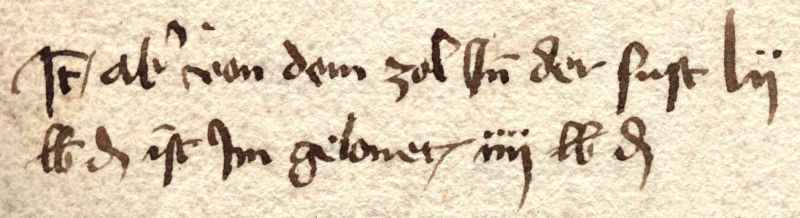 Jt / aber von dem zol vn̄ der sust lij
lb d ist Jm gelonet iiij lb d